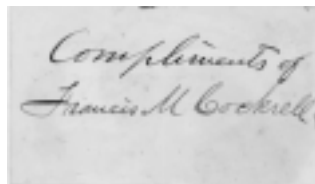 Compliments of
Francis M Cockrell